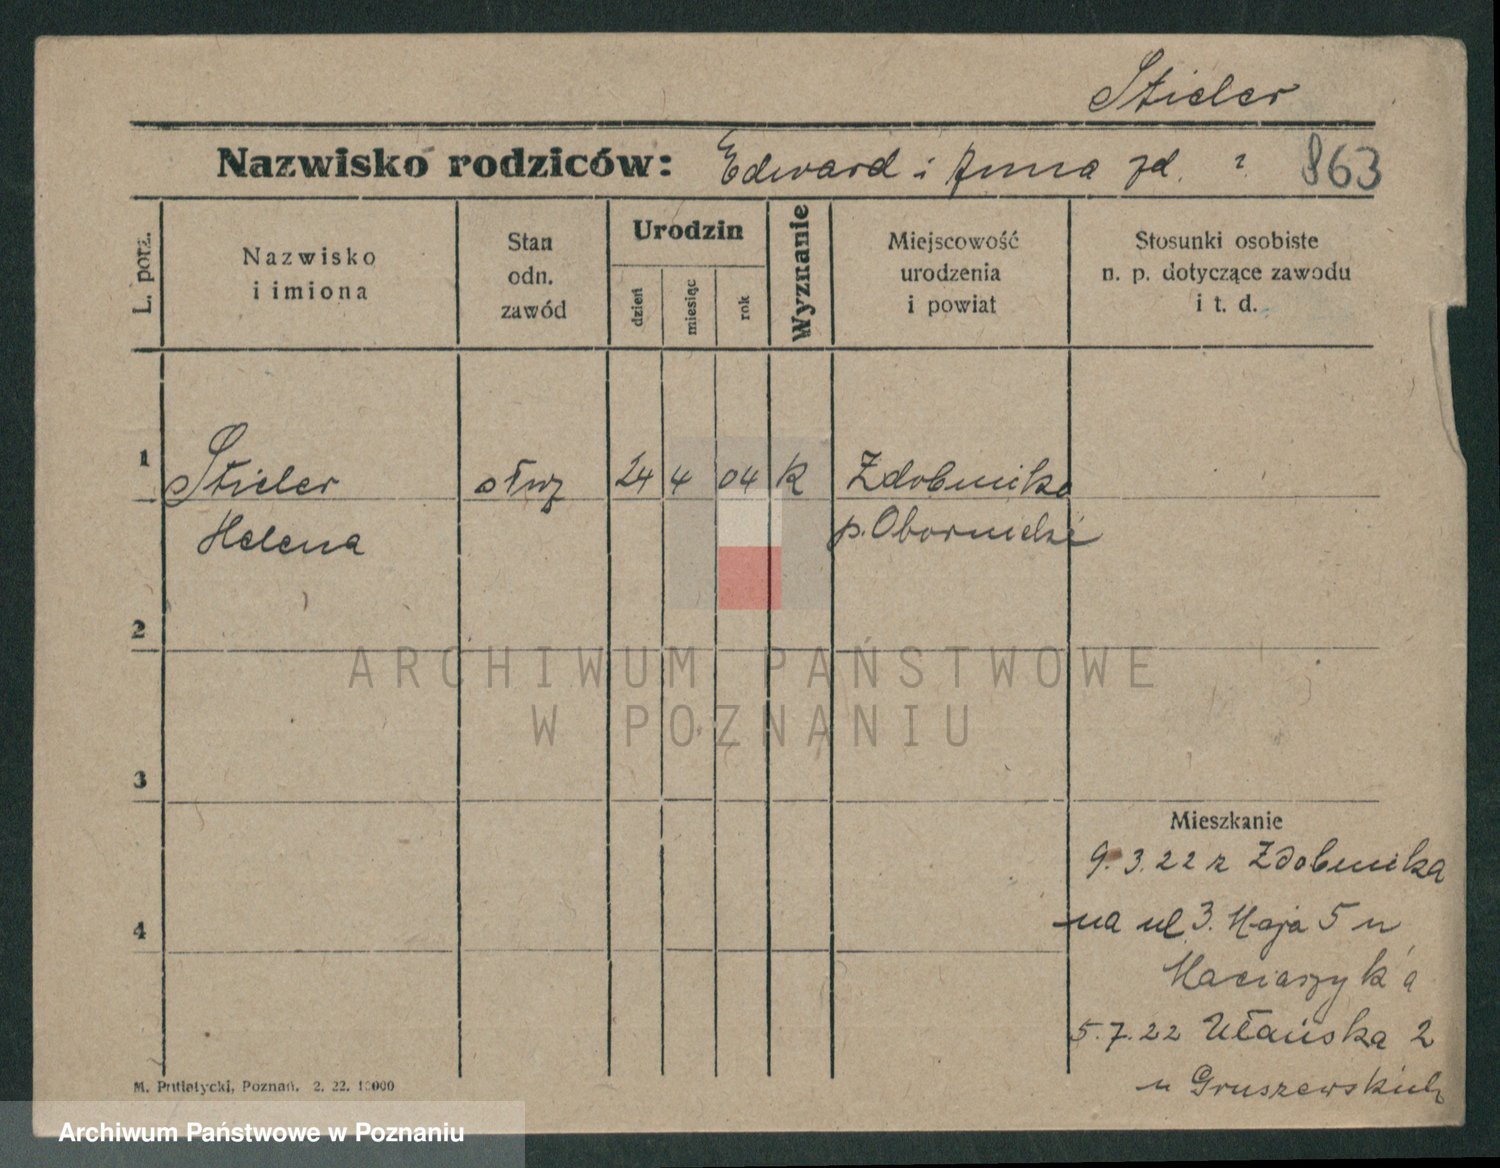 Stieler
Nazwisko rodziców: Edward i Anna zd. ? 863
L. porz.
Nazwisko
i imiona
Stan
odn.
zawód
Urodzin
dzień
miesiąc
rok
Wyznanie
Miejscowość
urodzenia
i powiat
Stosunki osobiste
n. p. dotyczące zawodu
i t. d.
1
Stieler służ 24 4 04 k
Helena p. Obornicki
2
ARCHIWUM PAŃSTWOWE
W POZNANIU
3
Mieszkanie
9.3.22 z
4
na ul 3. Maja 5 u
Maciaszyk'a
5.7.22 Ułańska 2
u Gruszewskich
M. Putiatycki, Poznań. 2. 22. 10000
Archiwum Państwowe w Poznaniu